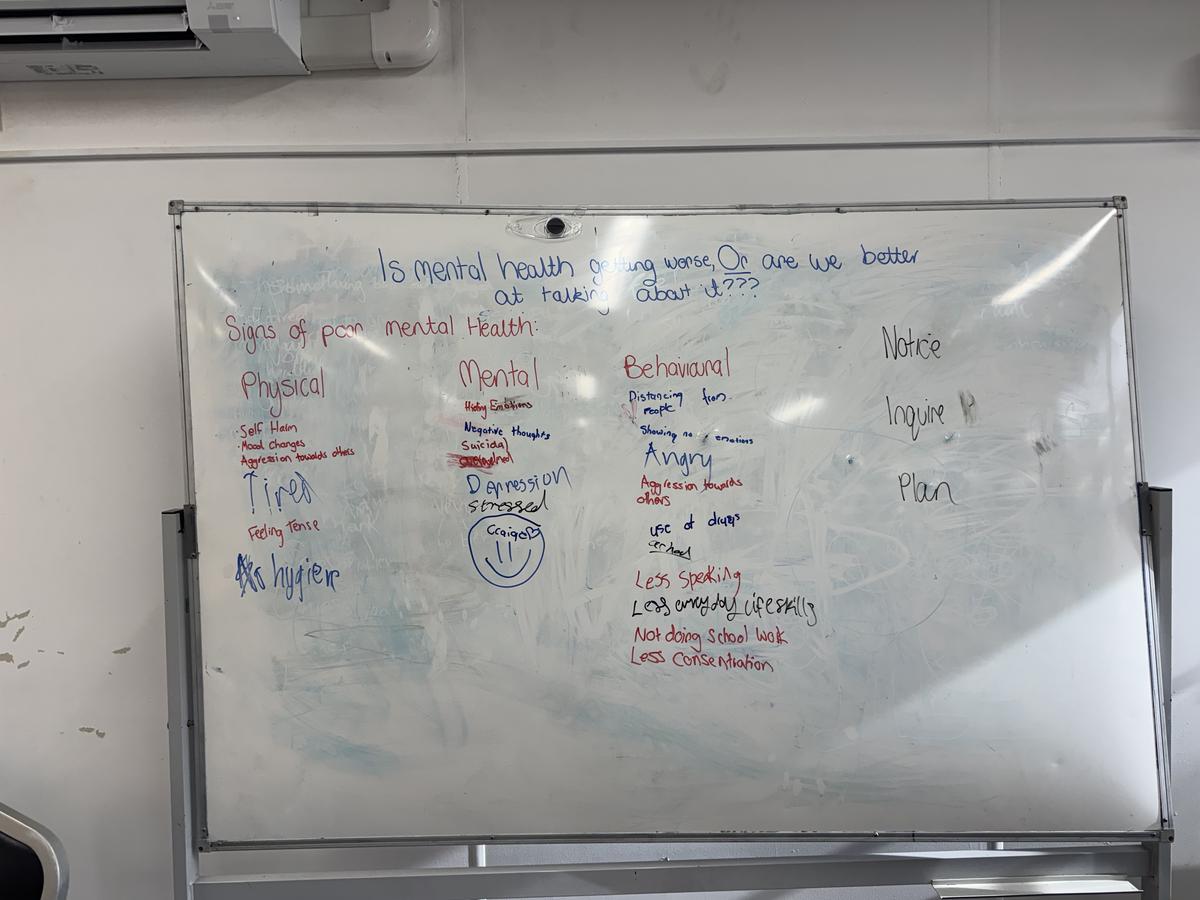 Is mental health getting worse, Or are we better
at talking about it???
Signs of poor mental Health:
Physical
· Self Harm
· Mood Changes
Aggression towards others
↑ired
Feeling Tense
hygiene
Mental
Hiding Emotions
Negative thoughts
Suicidal
Depression
stressed
Behavioural
Distancing from
people
Showing no emotions
Angry
Aggression towards
others
use of drugs
Less Speaking
Less everyday lifeskills
Not doing School work
Less Consentration
Notice
Inquire
Plan